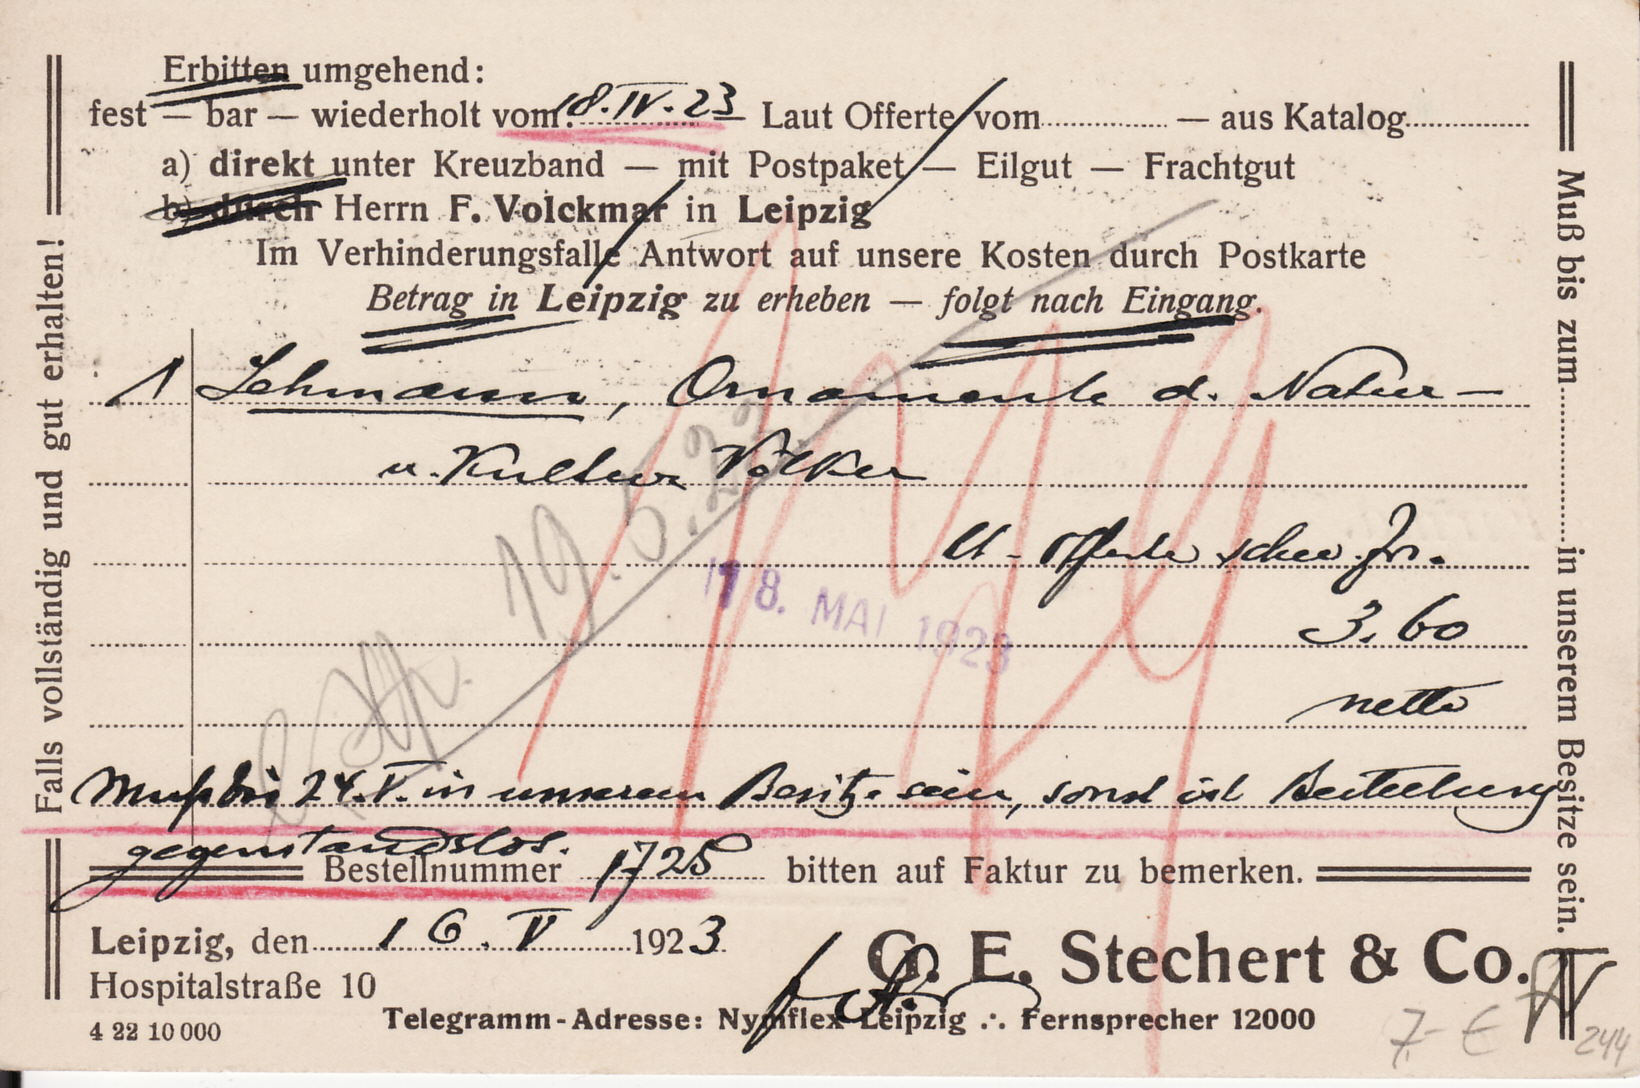 Erbitten umgehend:
fest — bar — wiederholt vom 18.IV.23 Laut Offerte vom — aus Katalog
a) direkt unter Kreuzband — mit Postpaket — Eilgut — Frachtgut
b) durch Herrn F. Volckmar in Leipzig
Im Verhinderungsfalle Antwort auf unsere Kosten durch Postkarte
Betrag in Leipzig zu erheben — folgt nach Eingang.
1 Lehmann, Ornamente d. Natur-
u. Kultur Völker
lt. Offerte schw. Fr.
3.60
netto
19.5.23
18. MAI 1923
Muß bis 24.V. in unserem Besitze sein, sonst ist Bestellung
gegenstandslos.
Bestellnummer 1725 bitten auf Faktur zu bemerken.
Leipzig, den 16.V 1923.
Hospitalstraße 10
G. E. Stechert & Co.
Telegramm-Adresse: Nymflex Leipzig ∴ Fernsprecher 12000
4 22 10 000
7.- €
244
Falls vollständig und gut erhalten!
Muß bis zum in unserem Besitze sein.